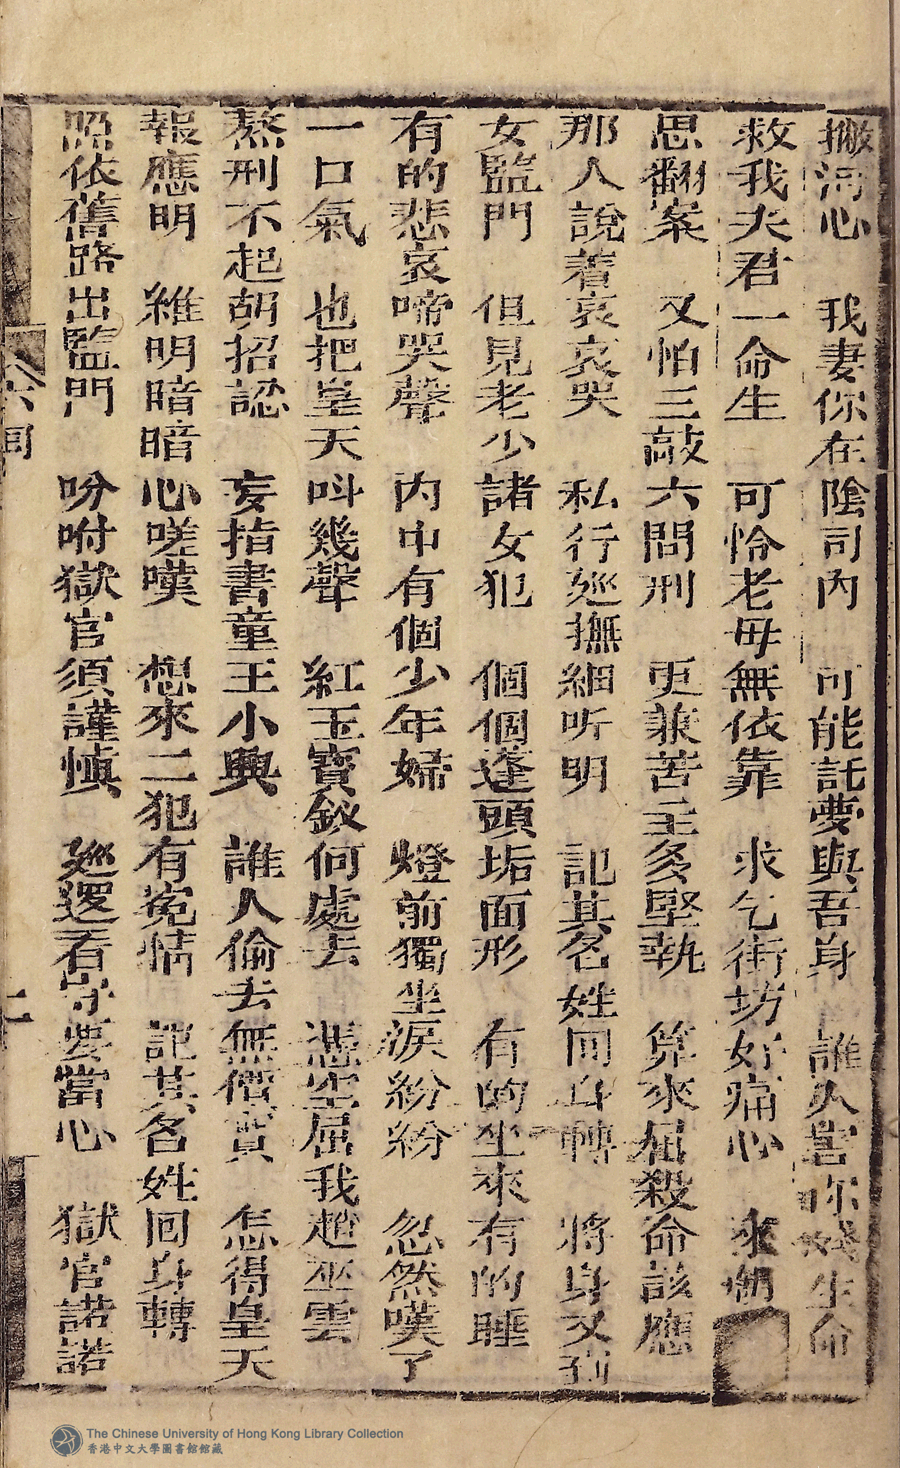 我妻你在陰司內　可能託夢與吾身　誰人害你殘生命
救我夫君一命生　可怜老毋無依靠　求乞街坊好痛心
思翻案　又怕三敲六問刑　更兼苦主多堅執　算來屈殺命該應
那人說着哀哀哭　私行廵撫細听明　記其名姓回身轉　將身又到
女監門　但見老少諸女犯　個個蓬頭垢面形　有的坐來有的睡
有的悲哀啼哭聲　內中有個少年婦　燈前獨坐淚紛紛　忽然嘆了
一口氣　也把皇天呌幾聲　紅玉寶釵何處去　憑空屈我趙巫雲
熬刑不起胡招認　妄指書童王小興　誰人偷去無價寶　怎得皇天
報應明　維明暗暗心嗟嘆　想來二犯有寃情　記其名姓回身轉
照依舊路出監門　吩咐獄官須謹慎　廵邏看守要當心　獄官諾諾
The Chinese University of Hong Kong Library Collection
香港中文大學圖書館館藏